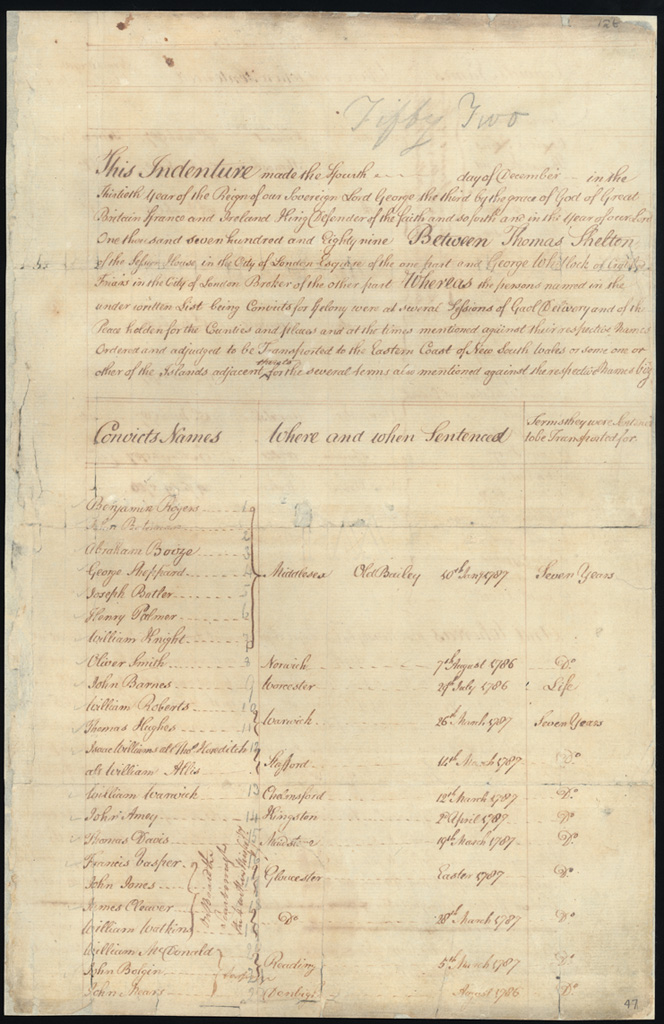 128
Fifty Two
This Indenture made the Fourth day of December in the
Thirtieth Year of the Reign of our Sovereign Lord George the third by the grace of God of Great
Britain France and Ireland King Defender of the faith and so forth and in the Year of our Lord
One thousand seven hundred and Eighty nine Between Thomas Shelton
of the Session House in the City of London Esquire of the one part and George Whitlock of
Friars in the City of London Broker of the other part Whereas the persons named in the
under written List being Convicts for Felony were at several Sessions of Gaol Delivery and of the
Peace holden for the Counties and places and at the times mentioned against their respective Names
Ordered and adjudged to be Transported to the Eastern Coast of New South Wales or some one or
other of the Islands adjacent for the several terms also mentioned against the respective Names
Convicts Names Where and when Sentenced Terms they were to be Transported for
Benjamin Rogers 1
John
Abraham Booze
George Sheppard Middlesex Old Bailey 10th Jany 1787 Seven Years
Joseph Butler 5
Henry Palmer 6
William Knight 7
Oliver Smith 8 Norwich 7th August 1786 Do
John Barnes 9 Worcester 29th July 1786 Life
William Roberts 10
Thomas Hughes 11 Warwick 26th March 1787 Seven Years
Isaac Williams als Thos Hereditch 12
als William Allis Stafford 14th March 1787 Do
William Warwick 13 Chelmsford 12th March 1787 Do
John Amey 14 Kingston 2d April 1787 Do
Thomas Davis 19th March 1787 Do
Francis Casper
John Jones Gloucester Easter 1787 Do
James Cleaver
William Watkins Do 28th March 1787 Do
William McDonald
John Bolgin Reading 5th March 1787 Do
John Mears Denbigh August 1786 Do
47